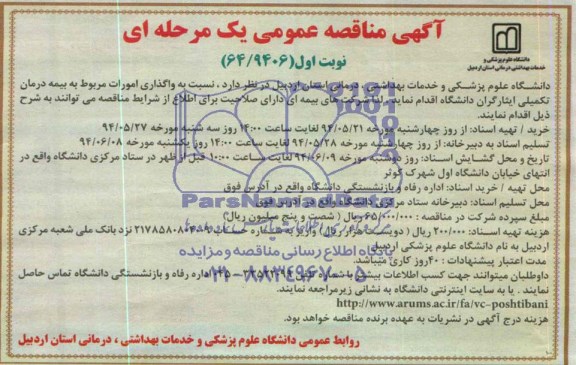 آگهی مناقصه عمومی یک مرحله ای
نوبت اول(۶۴/۹۴۰۶)
دانشگاه علوم پزشکی و
خدمات بهداشتی درمانی استان اردبیل
دانشگاه علوم پزشکی و خدمات بهداشتی ، درمانی استان اردبیل در نظر دارد ، نسبت به واگذاری امورات مربوط به بیمه درمان
تکمیلی ایثارگران دانشگاه اقدام نماید، لذا شرکت های بیمه ای دارای صلاحیت برای اطلاع از شرایط مناقصه می توانند به شرح
ذیل اقدام نمایند.
خرید / تهیه اسناد: از روز چهارشنبه مورخه ۹۴/۰۵/۲۱ لغایت ساعت ۱۴:۰۰ روز سه شنبه مورخه ۹۴/۰۵/۲۷
تسلیم اسناد به دبیرخانه: از روز چهارشنبه مورخه ۹۴/۰۵/۲۸ لغایت ساعت ۱۴:۰۰ روز یکشنبه مورخه ۹۴/۰۶/۰۸
تاریخ و محل گشایش اسناد: روز دوشنبه مورخه ۹۴/۰۶/۰۹ لغایت ساعت ۱۰:۰۰ قبل از ظهر در ستاد مرکزی دانشگاه واقع در
انتهای خیابان دانشگاه اول شهرک کوثر
محل تهیه / خرید اسناد: اداره رفاه و بازنشستگی دانشگاه واقع در آدرس فوق
محل تسلیم اسناد: دبیرخانه ستاد مرکزی دانشگاه واقع در آدرس فوق
مبلغ سپرده شرکت در مناقصه : ۶۵/۰۰۰/۰۰۰ ریال ( شصت و پنج میلیون ریال)
هزینه تهیه اسناد: ۲۰۰/۰۰۰ ریال (دویست هزار ریال) واریز به شماره حساب ۲۱۷۸۵۸۰۸۰۴۰۰۹ نزد بانک ملی شعبه مرکزی
اردبیل به نام دانشگاه علوم پزشکی اردبیل
مدت اعتبار پیشنهادات : ۴۰روز کاری میباشد.
داوطلبان میتوانند جهت کسب اطلاعات بیشتر با شماره تلفن اداره رفاه و بازنشستگی دانشگاه تماس حاصل
نمایند . یا به سایت اینترنتی دانشگاه به نشانی زیرمراجعه نمایند.
http://www.arums.ac.ir/fa/vc-poshtibani
هزینه درج آگهی در نشریات به عهده برنده مناقصه خواهد بود.
روابط عمومی دانشگاه علوم پزشکی و خدمات بهداشتی ، درمانی استان اردبیل
ParsNamadData
پایگاه اطلاع رسانی مناقصه و مزایده
۰۲۱-۸۸۳۴۹۶۷۰-۵